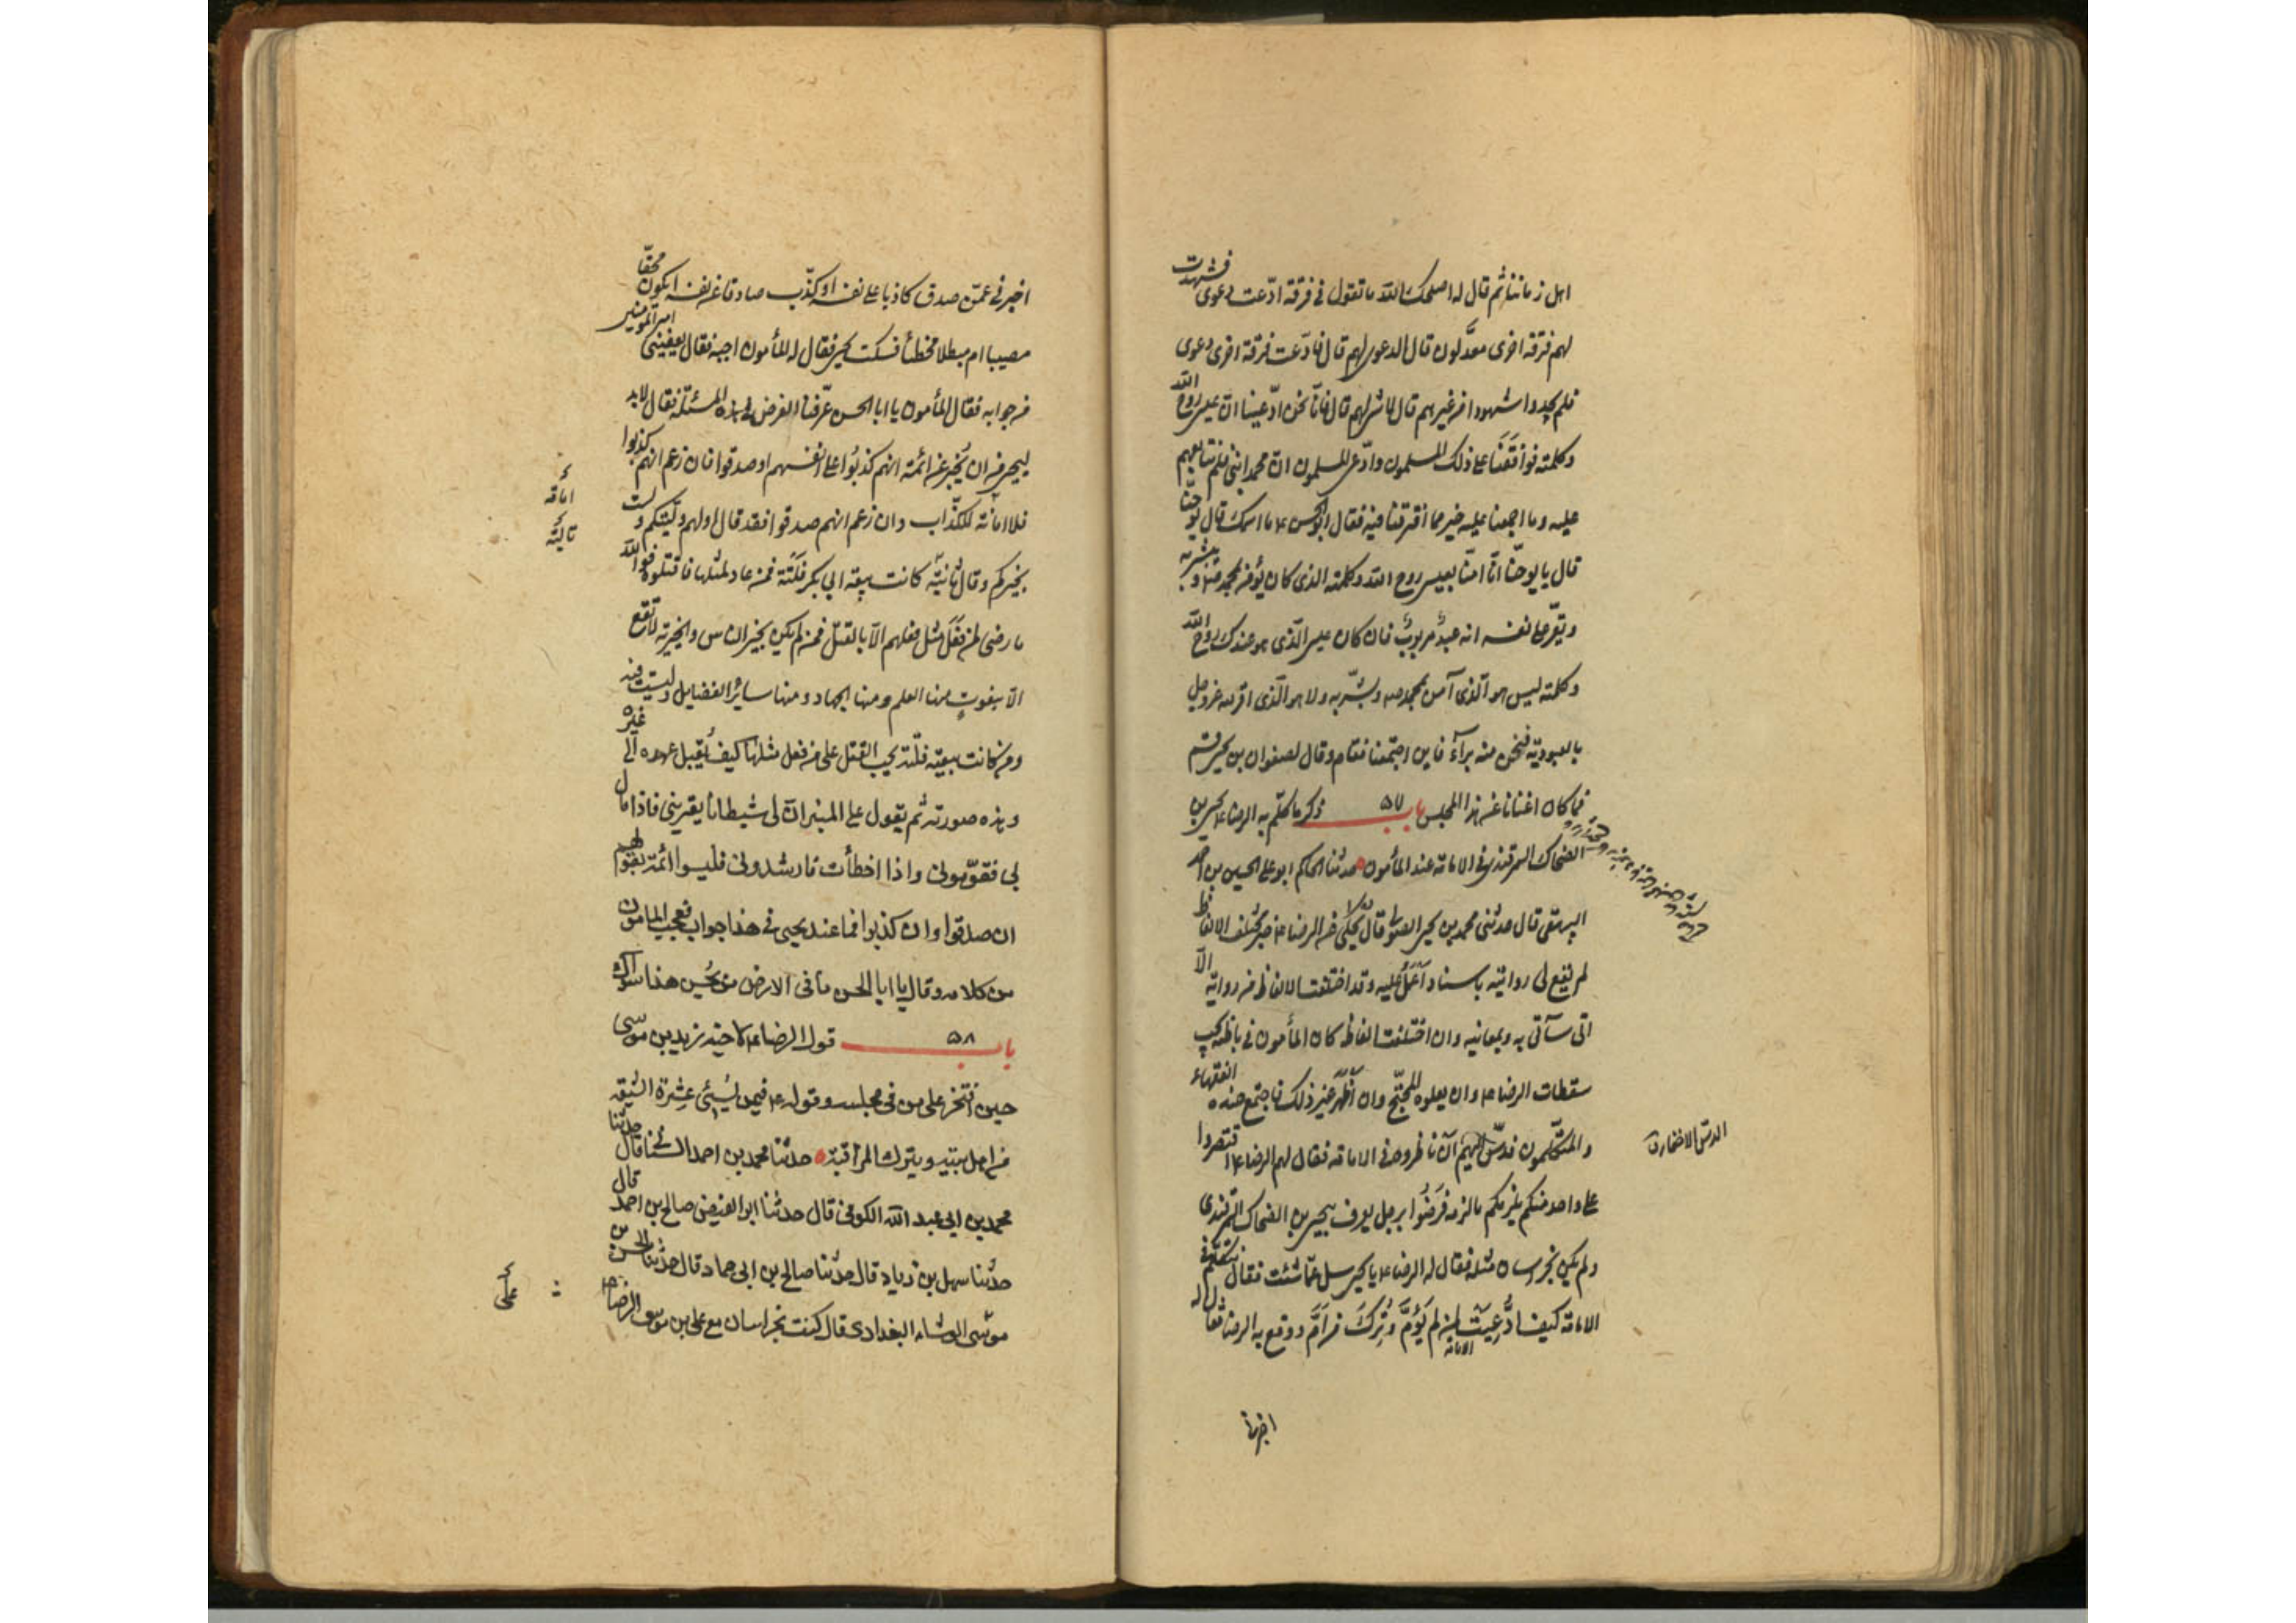 اهل زماننا ثم قال له اصلحك الله ما تقول فى فرقة ادّعت دعوى فشهدت
لهم فرقة اخرى معدّلون قال الدعوى لهم قال فادّعت فرقة اخرى دعوى
فلم يجدوا شهودا من غيرهم قال لا شئ لهم قال فانّا نحن ادّعينا ان عيسى روح الله
وكلمته فوافَقَنا على ذلك المسلمون وادّعى المسلمون ان محمدا نبى فلم نتابعهم
عليه وما اجمعنا عليه خير مما افترقنا فيه فقال ابو الحسن ع ما اسمك قال يوحنّا
قال يا يوحنّا انّا امنّا بعيسى روح الله وكلمته الذى كان يؤمن بمحمد ص ويبشر به
ويقرّ على نفسه انه عبدٌ مربوبٌ فان كان عيسى الّذى هو عندك روح الله
وكلمته ليس هو الّذى آمن بمحمد ص وبشّر به ولا هو الّذى اقر لله عز وجل
بالعبودية فنحن منه برآءٌ فاين اجتمعنا فقام وقال لصفوان بن يحيى قم
فما كان اغنانا عن هذا المجلس باب ٥٧ ذكر ما كلّم به الرضا ع يحيى بن
الضحاك السمرقندى فى الامامة عند المأمون حدثنا الحاكم ابو على الحسين بن احمد
البيهقى قال حدثنى محمد بن يحيى الصولى قال يُحكى عن الرضا ع خبر مختلف الالفاظ
لم تقع لى روايته باسناد اَعمَلُ عليه وقد اختلفت الالفاظ فى روايته الّا
انى سآتى به وبمعانيه وان اختلفت الفاظه كان المأمون فى باطنه يحب
سقطات الرضا ع وان يعلوه المحتجّ وان اَظهَرَ غير ذلك فاجتمع عنده الفقهاء
والمتكلّمون فدسّ اليهم اَن ناظروه فى الامامة فقال لهم الرضا ع اقتصروا
الدسّ الاخفاء ق
على واحد منكم يلزمكم ما لزمه فرَضُوا برجل يعرف بيحيى بن الضحاك السمرقندى
ولم يكن بخراسان مثله فقال له الرضا ع يا يحيى سل عمّا شئت فقال نتكلم فى
الامامة كيف ادَّعيت لمن لم يَؤُمَّ وتركتَ من اَمَّ ووقع به الرضا فقال له
الامامة
اخبرنا
اخبرنى عمّن صدق كاذبا على نفسه او كذّب صادقا عن نفسه ايكون محقّا
مصيبا ام مبطلا مخطئا فسكت يحيى فقال له المأمون اجبه فقال يعفينى امير المؤمنين
من جوابه فقال المأمون يا ابا الحسن عرّفنا الغرض فى هذه المسئلة فقال لابد
ليحيى من ان يُخبر عن ائمته انهم كذبُوا على انفسهم او صدقوا فان زعم انهم كذبوا
فلا امانة للكذّاب وان زعم انهم صدقوا فقد قال اولهم وليتكم ولست
امامة
بخيركم وقال ثانيه كانت بيعة ابى بكر فلتة فمن عاد لمثلها فاقتلوه فوالله
تاليه
ما رضى لمن فعَلَ مثل فعلهم الّا بالقتل فمن لم يكن بخير الناس والخيرية لا تقع
الّا بنعوتٍ منها العلم ومنها الجهاد ومنها سائر الفضايل وليست فيه
ومن كانت بيعته فلتة يجب القتل على من فعل مثلها كيف يُقبل عهده الى غيره
وهذه صورته ثم يقول على المنبر انّ لى شيطانا يعترينى فاذا مال
بى فقوّمونى واذا اخطأت فارشدونى فليسوا ائمة بقولهم
ان صدقوا وان كذبوا فما عند يحيى فى هذا جواب فعجب المأمون
من كلامه وقال يا ابا الحسن ما فى الارض من يُحسن هذا سواك
باب ٥٨ قول الرضا ع لاخيه زيد بن موسى
حين افتخر على من فى مجلسه وقوله ع فيمن يُسيئ عِشرة الشيعة
من اهل بيته ويترك المراقبة حدثنا محمد بن احمد السنانى قال حدثنا
محمد بن ابى عبد الله الكوفى قال حدثنا ابو الفيض صالح بن احمد قال
حدثنا سهل بن زياد قال حدثنا صالح بن ابى حماد قال حدثنا الحسن بن
موسى الوشاء البغدادى قال كنت بخراسان مع على بن موسى الرضا ع
على